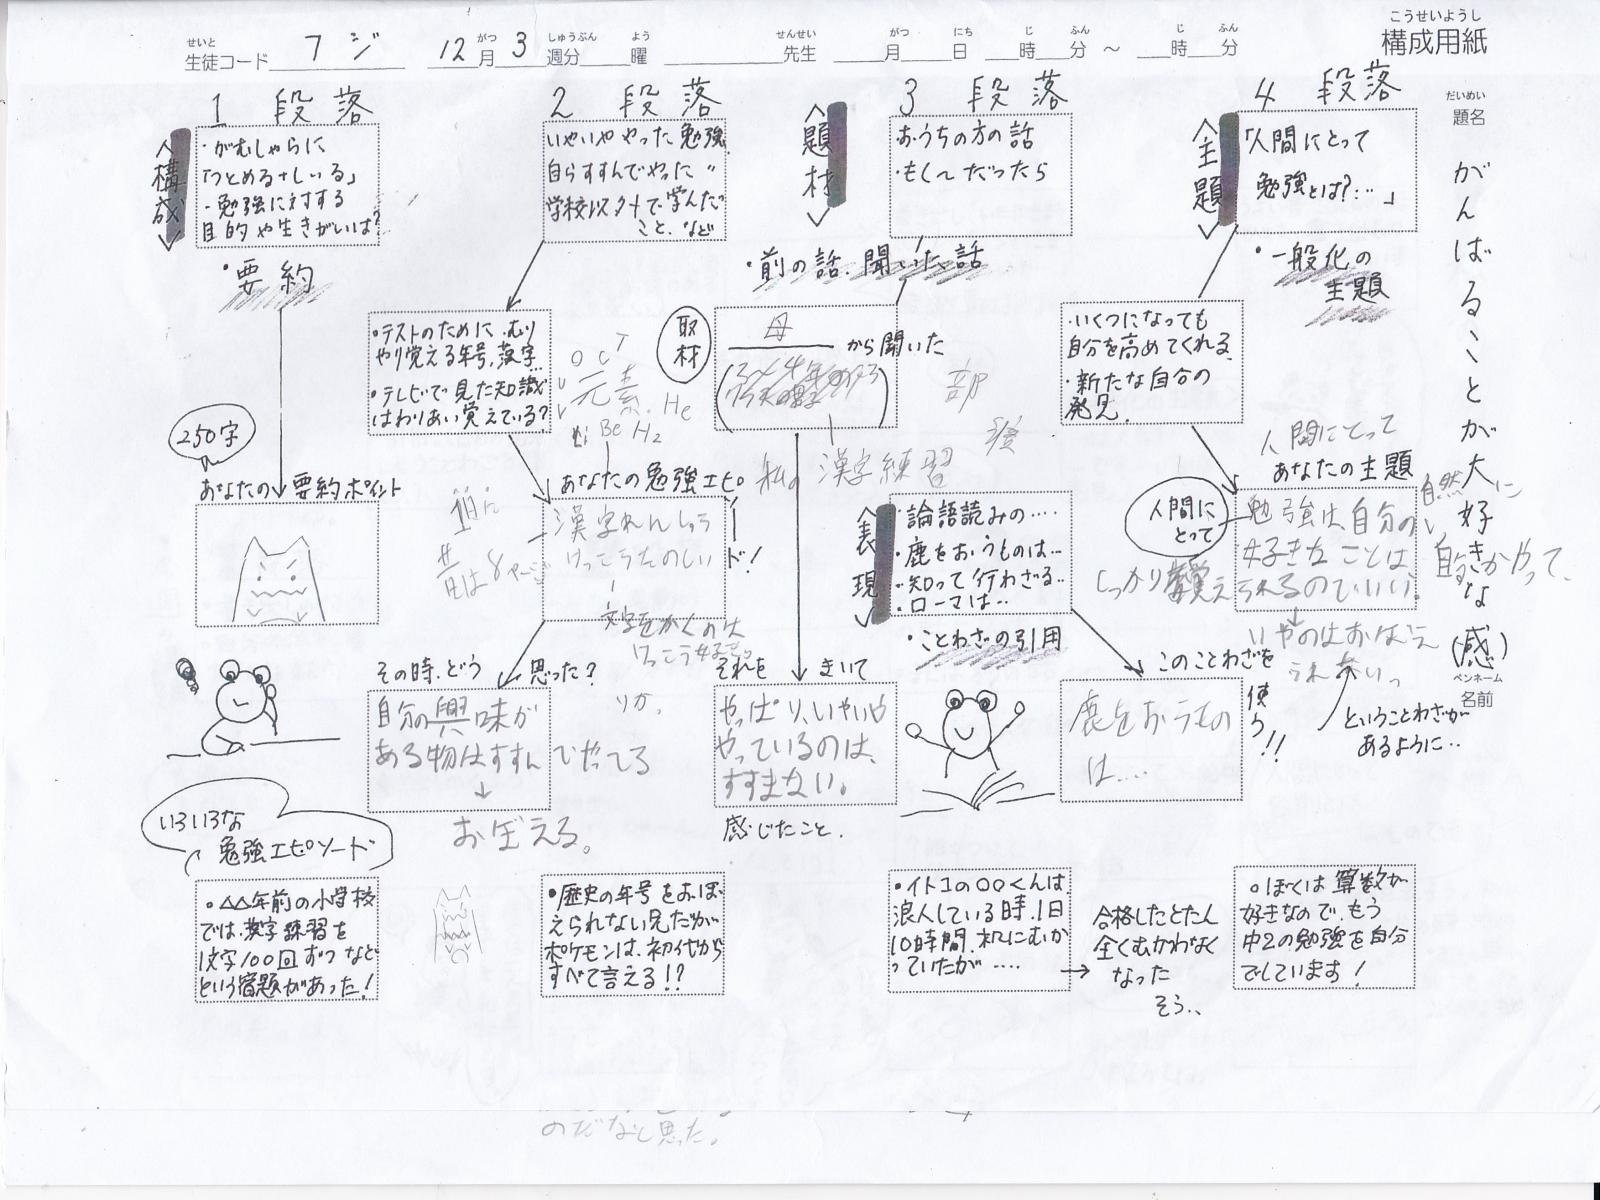 こうせいようし
構成用紙
せいと がつ しゅうぶん よう せんせい がつ にち じ ふん じ ふん
生徒コード フジ 12月3週分 曜 先生 月 日 時 分 ～ 時 分
だいめい
題名
がんばることが大好きな(感)
ペンネーム
名前
1 段落
〈構成〉
・がむしゃらに
「つとめる+しいる」
・勉強に対する
目的や生きがいは?
・要約
250字
あなたの要約ポイント
いろいろな
勉強エピソード
・△△年前の小学校
では、漢字練習を
1文字100回ずつなど
という宿題があった!
2 段落
いやいややった勉強
自らすすんでやった〃
学校以外で学んだ
こと、など
・テストのために、むり
やり覚える年号、漢字…
・テレビで見た知識
はわりあい覚えている?
元素
He
Be H2
あなたの勉強エピソード!
漢字れんしゅう
けっこうたのしい
昔は8ページ
文字をかくのは
けっこう好き。
その時、どう思った?
りか。
自分の興味が
ある物はすすんでやってる
↓
おぼえる。
・歴史の年号をおぼ
えられない兄だが
ポケモンは、初代から
すべて言える!?
3 段落
〈題材〉
おうちの方の話
・もし〜だったら
・前の話、聞いた話
取材
母から聞いた
私の漢字練習
それをきいて
やっぱり、いやいや
やっているのは、
すすまない。
感じたこと.
〈表現〉
・論語読みの‥‥
・鹿をおうものは…
・知って行わざる…
・ローマは…
・ことわざの引用
このことわざを使う!!
鹿をおうもの
は‥‥
・イトコの〇〇くんは、
浪人している時、1日
10時間、机にむか
っていたが‥‥
→
合格したとたん
全くむかわなく
なった
そう、、
4 段落
〈主題〉
「人間にとって
勉強とは?…」
・一般化の
主題
・いくつになっても
自分を高めてくれる、
・新たな自分の
発見
人間にとって
あなたの主題
人間に
とって
勉強は、自分の
好きなことは、
しっかり覚えられるのでいい。
自然に
自分からやって、
いやのはおぼえ
られない
ということわざが
あるように‥
○ぼくは算数が
好きなので、もう
中2の勉強を自分
でしています!
のだなと思った。